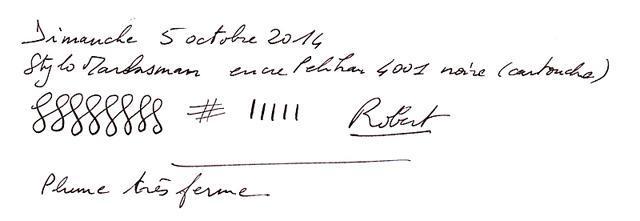 Dimanche 5 octobre 2014
Stylo Marksman encre Pelikan 4001 noire (cartouche)
# Robert
Plume très ferme